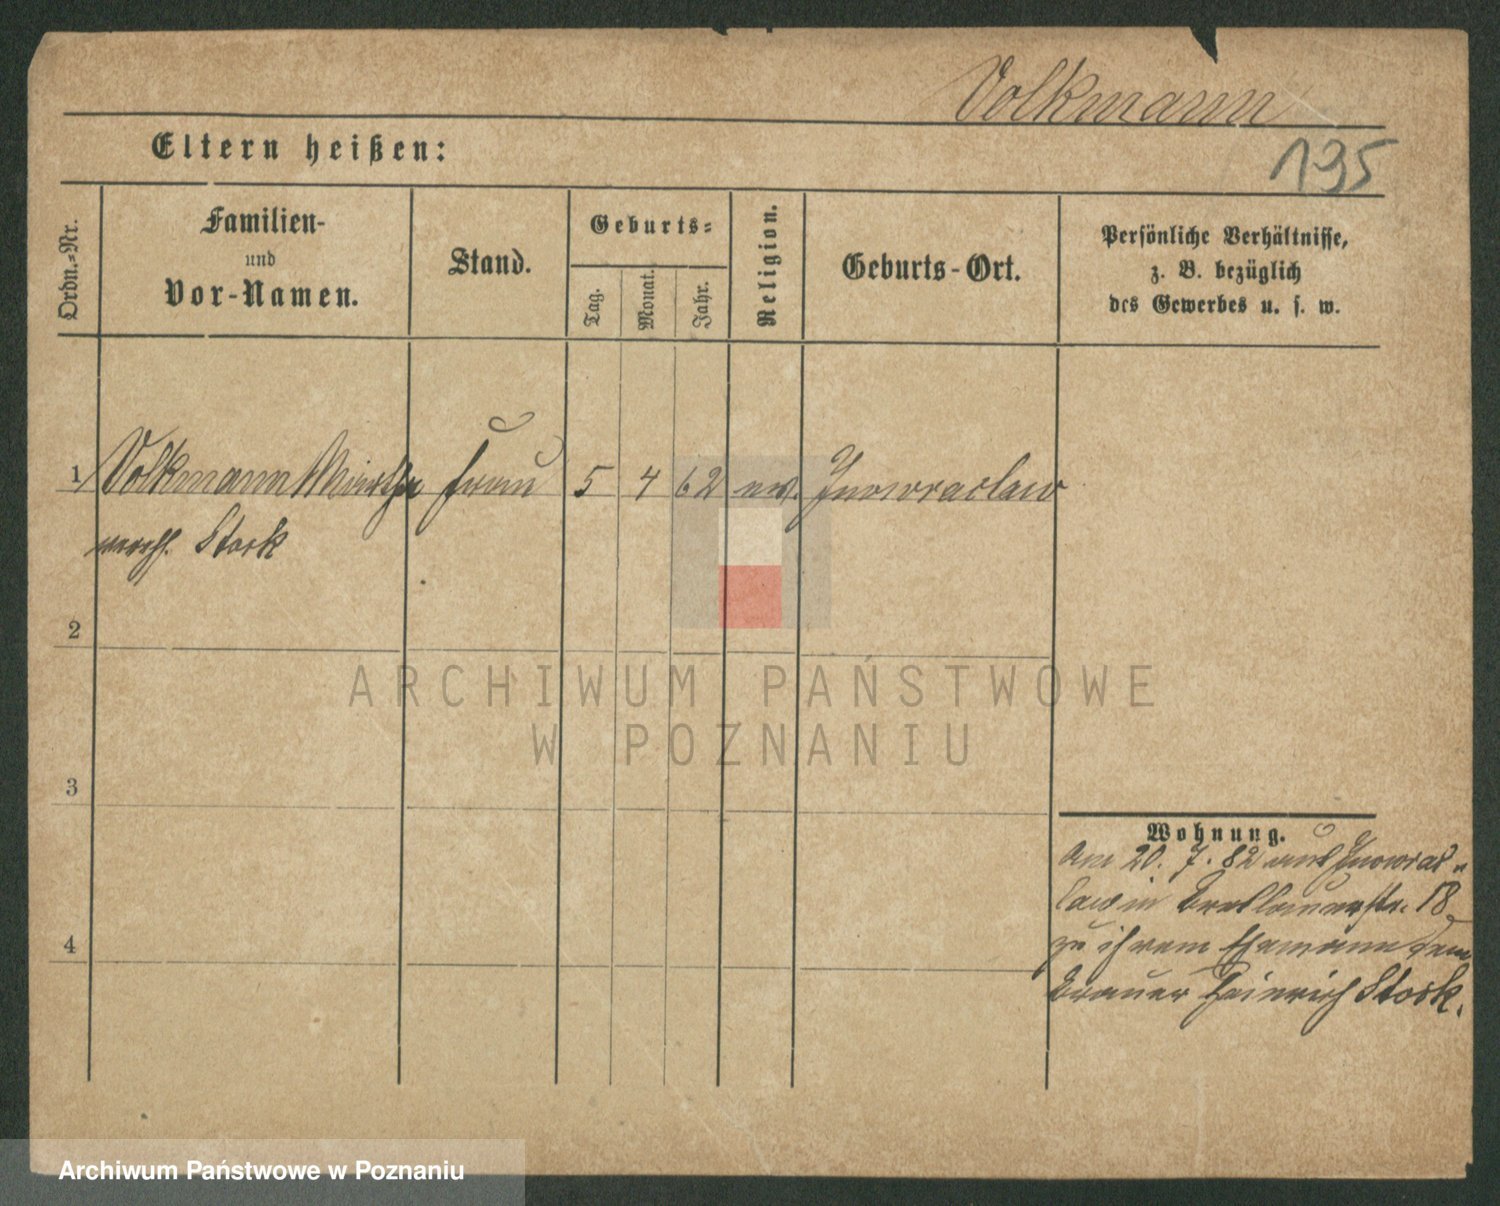 Volkmann
195
Eltern heißen:
Ordn.-Nr.
Familien-
und
Vor-Namen.
Stand.
Geburts-
Tag.
Monat.
Jahr.
Religion.
Geburts-Ort.
Persönliche Verhältnisse,
z. B. bezüglich
des Gewerbes u. s. w.
1 Volkmann Martha Frau 5 4 62 ev. Inowraclaw
verehl. Stock
2
3
4
Wohnung.
Am 20. 7. 82 aus Inowrac-
law in Breslauerstr. 18
zu ihrem Ehemann dem
Brauer Heinrich Stock.
ARCHIWUM PAŃSTWOWE
W POZNANIU
Archiwum Państwowe w Poznaniu